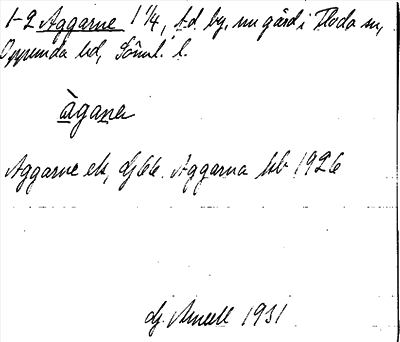 1-2 Aggarne 1 1/4, f.d. by, nu gård i Floda sn,
Oppunda hd, Söml. l.
àgana
Aggarne ek, dj 66. Aggarna hb 1926
dj. Ameell 1931